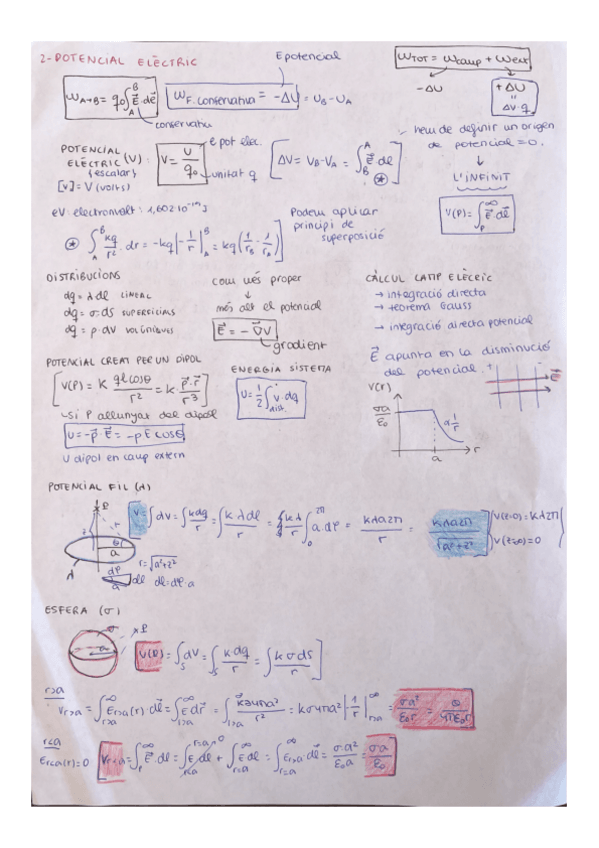 2-POTENCIAL ELÈCTRIC
Epotencial
W_TOT = W_camp + W_ext
-ΔU
+ΔU
=
ΔV·q
W_A→B = q₀∫_A^B E⃗·dl⃗
conservatiu
W_F. conservativa = -ΔU = U_B - U_A
POTENCIAL ELÈCTRIC (V) :
(escalar)
[V] = V (volts)
V = U/q₀
E pot elec.
unitat q
[ΔV = V_B - V_A = ∫_B^A E⃗ dl ⊛]
heu de definir un origen
de potencial = 0.
↓
L'INFINIT
↓
V(P) = ∫_P^∞ E⃗·dl⃗
eV: electronvolt: 1,602·10⁻¹⁹ J
⊛ ∫_A^B kq/r² · dr = -kq |-1/r|_A^B = kq (1/r_B - 1/r_A)]
Podem aplicar
principi de
superposició
DISTRIBUCIONS
dq = λ·dl LINEAL
dq = σ·ds SUPERFICIALS
dq = ρ·dV VOLÚMIQUES
com més proper
↓
més alt el potencial
E⃗ = -∇⃗V
gradient
CÀLCUL CAMP ELÈCTRIC
→ integració directa
→ teorema Gauss
→ integració directa potencial
POTENCIAL CREAT PER UN DIPOL
[V(P) = K qlcosθ/r² = k· p⃗·r⃗/r³]
si P allunyat del dipol
U = -p⃗·E⃗ = -pE cosθ
U dipol en camp extern
ENERGIA SISTEMA
U = 1/2 ∫_dist. V·dq
E⃗ apunta en la disminució
del potencial.
+ - E⃗
V(r)
σa/ε₀
α 1/r
a
r
POTENCIAL FIL (λ)
P
z
r
θ
a
λ
r = √a²+z²
dφ
a
dl dl = dφ·a
V = ∫dV = ∫kdq/r = ∫kλdl/r = kλ/r ∫_0^2π a·dφ = kλa2π/r = kλa2π/√a²+z² ] V(z=0) = kλ2π
V(z=∞) = 0
ESFERA (σ)
σ
P
a
V(P) = ∫_S dV = ∫_S k·dq/r = ∫ kσds/r ]
r>a
V_r>a = ∫_r>a^∞ E_r>a(r)·dl⃗ = ∫_r>a^∞ E dr⃗ = ∫_r>a^∞ kσ4πa²/r² = kσ4πa² |1/r|_r>a^∞ = σa²/ε₀r = Q/4πε₀r
r<a
E_r<a(r) = 0
V_r<a = ∫_r^∞ E⃗·dl = ∫_r<a^r=a E·dl + ∫_r=a^∞ E dl = ∫_r=a^∞ E_r>a·dl⃗ = σa²/ε₀a = σa/ε₀